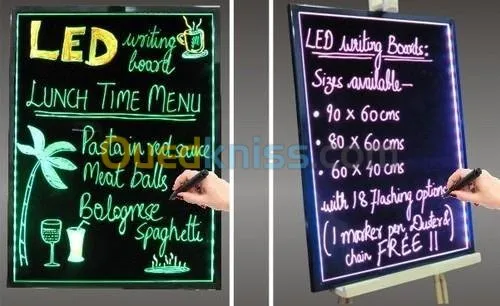 LED writing
board
LUNCH TIME MENU
Pasta in red sauce
Meat balls
Bolognese
spaghetti
LED Writing Boards:
Sizes available-
• 90 x 60 cms
• 80 x 60 cms
• 60 x 40 cms
with 18 flashing options
(1 marker pen, Duster &
chain FREE !!)
Ouedkniss.com